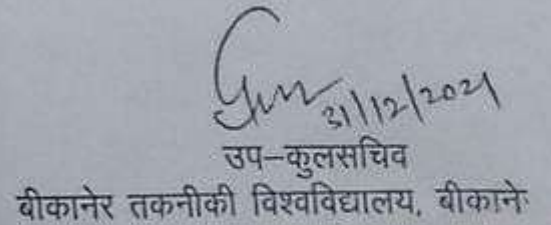 31/12/2021
उप–कुलसचिव
बीकानेर तकनीकी विश्वविद्यालय, बीकाने